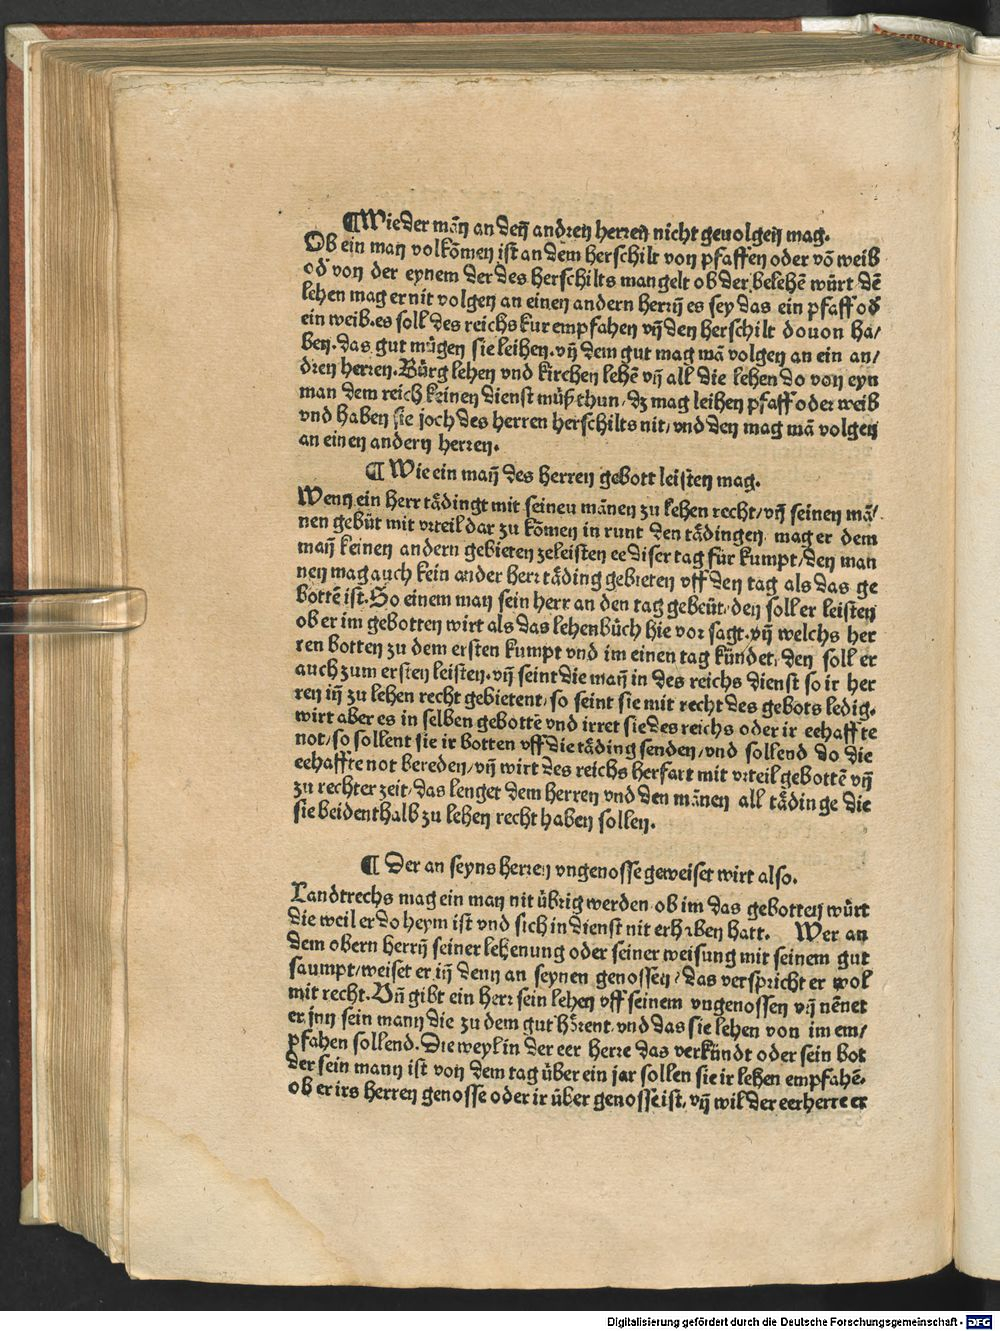 ¶Wie der mañ an deñ andren herren nicht geuolgen mag.
Ob ein man volkōmen ist an dem herschilt von pfaffen oder vō weib
od von der eynem der des herschilts mangelt ob der belehē würt dē
lehen mag er nit volgen an einen andern herrñ es sey das ein pfaff od
ein weib. es soll des reichs kur empfahen vñ den herschilt douon ha/
ben. das gut mügen sie leihen. vñ dem gut mag mā volgen an ein an/
dren herren. Bürg lehen vnd kirchen lehē vñ all die lehen do von eyn
man dem reich keinen dienst müß thun/ dz mag leihen pfaff oder weib
vnd haben sie joch des herren herschilts nit/ vnd den mag mā volgen
an einen andern herren.
¶ Wie ein mañ des herren gebott leisten mag.
Wenn ein herr tädingt mit seinen mānen zu lehen recht/ vñ seinen mā/
nen gebüt mit vrteil dar zu kōmen in runt den tädingen mag er dem
mañ keinen andern gebieten zeleisten ee diser tag für kumpt/ den man
nen mag auch kein ander herr täding gebieten vff den tag als das ge
bottē ist. So einem man sein herr an den tag gebeüt/ den soll er leisten
ob er im gebotten wirt als das lehenbůch hie vor sagt. vñ welchs her
ren botten zu dem ersten kumpt vnd im einen tag kündet/ den soll er
auch zum ersten leisten. vñ seint die mañ in des reichs dienst so ir her
ren iñ zu lehen recht gebietent/ so seint sie mit recht des gebots ledig.
wirt aber es in selben gebottē vnd irret sie des reichs oder ir eehaffte
not/ so sollent sie ir botten vff die täding senden/ vnd sollend do die
eehaffte not bereden/ vñ wirt des reichs herfart mit vrteil gebottē vñ
zu rechter zeit/ das lenget dem herren vnd den mānen all tädinge die
sie beidenthalb zu lehen recht haben sollen.
¶ Der an seyns herren vngenosse geweiset wirt also.
Landtrechs mag ein man nit übrig werden ob im das gebotten würt
die weil er do heym ist vnd sich in dienst nit erhaben hatt. Wer an
dem obern herrñ seiner lehenung oder seiner weisung mit seinem gut
saumpt/ weiset er iñ denn an seynen genossen/ das verspricht er wol
mit recht. Vñ gibt ein herr sein lehen vff seinem vngenossen vñ nēnet
er jnn sein mann die zu dem gut hörent/ vnd das sie lehen von im em/
pfahen sollend. Die weyl in der eer herre das verkündt oder sein bot
der sein mann ist von dem tag über ein jar sollen sie ir lehen empfahē.
ob er irs herren genosse oder ir über genosse ist/ vñ wil der eer herre er
Digitalisierung gefördert durch die Deutsche Forschungsgemeinschaft - DFG